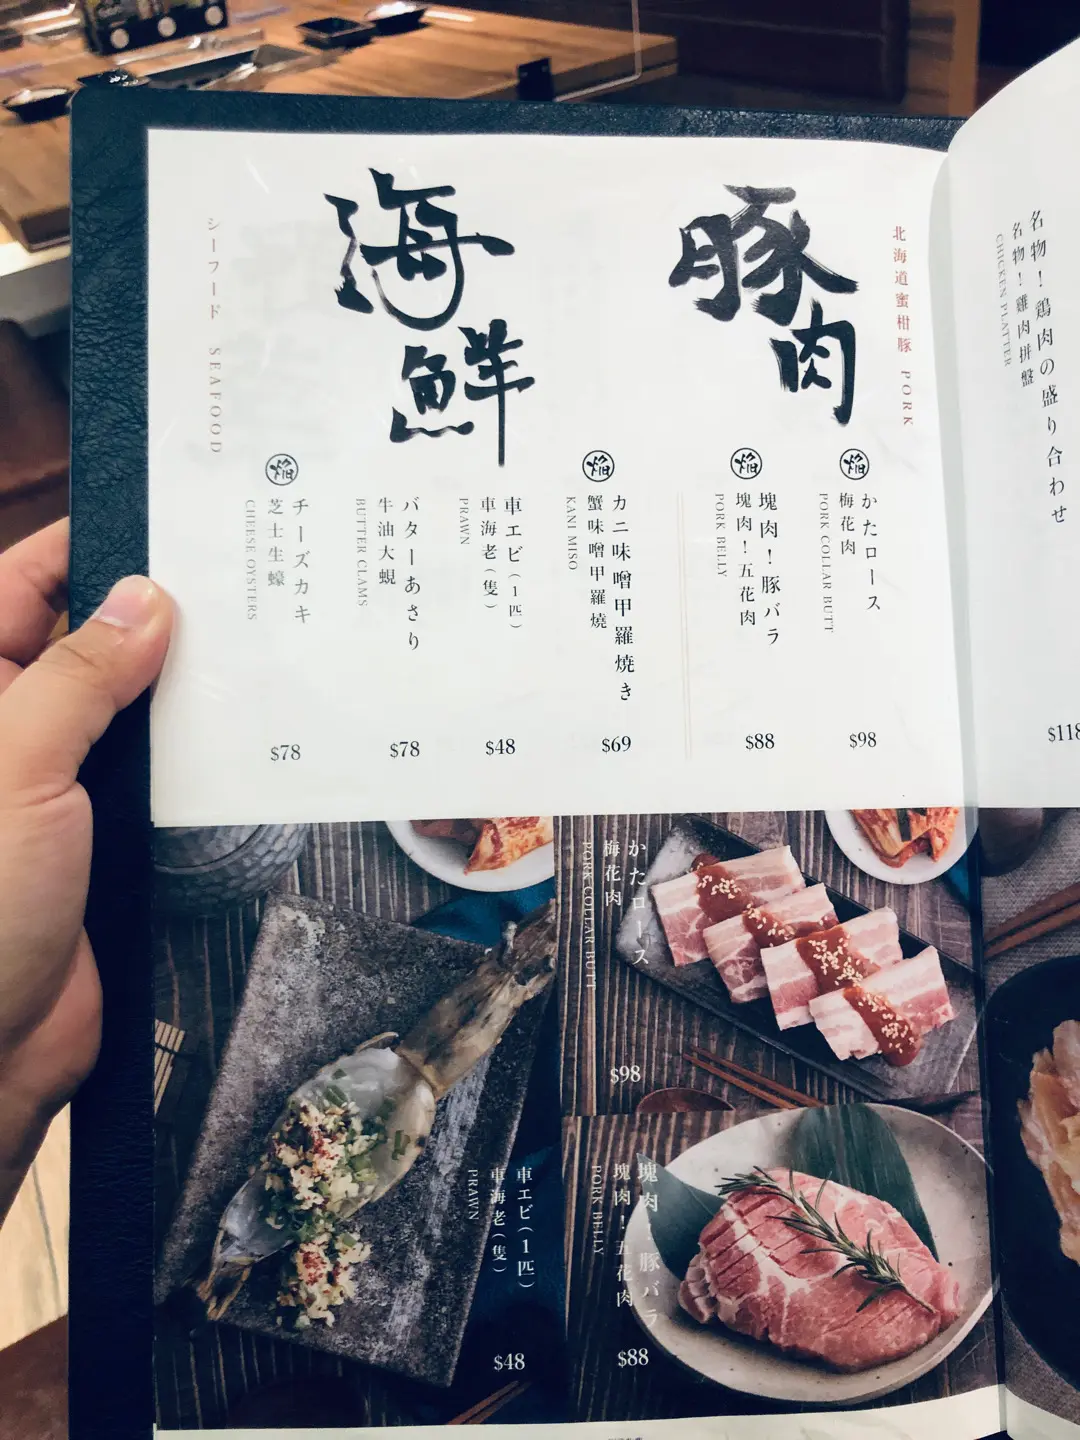 名物！鶏肉の盛り合わせ
名物！雞肉拼盤
CHICKEN PLATTER
$118
北海道蜜柑豚 PORK
豚肉
焔
かたロース
梅花肉
PORK COLLAR BUTT
$98
焔
塊肉！豚バラ
塊肉！五花肉
PORK BELLY
$88
海鮮
焔
カニ味噌甲羅焼き
蟹味噌甲羅燒
KANI MISO
$69
車エビ（1匹）
車海老（隻）
PRAWN
$48
バターあさり
牛油大蜆
BUTTER CLAMS
$78
焔
チーズカキ
芝士生蠔
CHEESE OYSTERS
$78
シーフード SEAFOOD
かたロース
梅花肉
PORK COLLAR BUTT
$98
塊肉！豚バラ
塊肉！五花肉
PORK BELLY
$88
車エビ（1匹）
車海老（隻）
PRAWN
$48